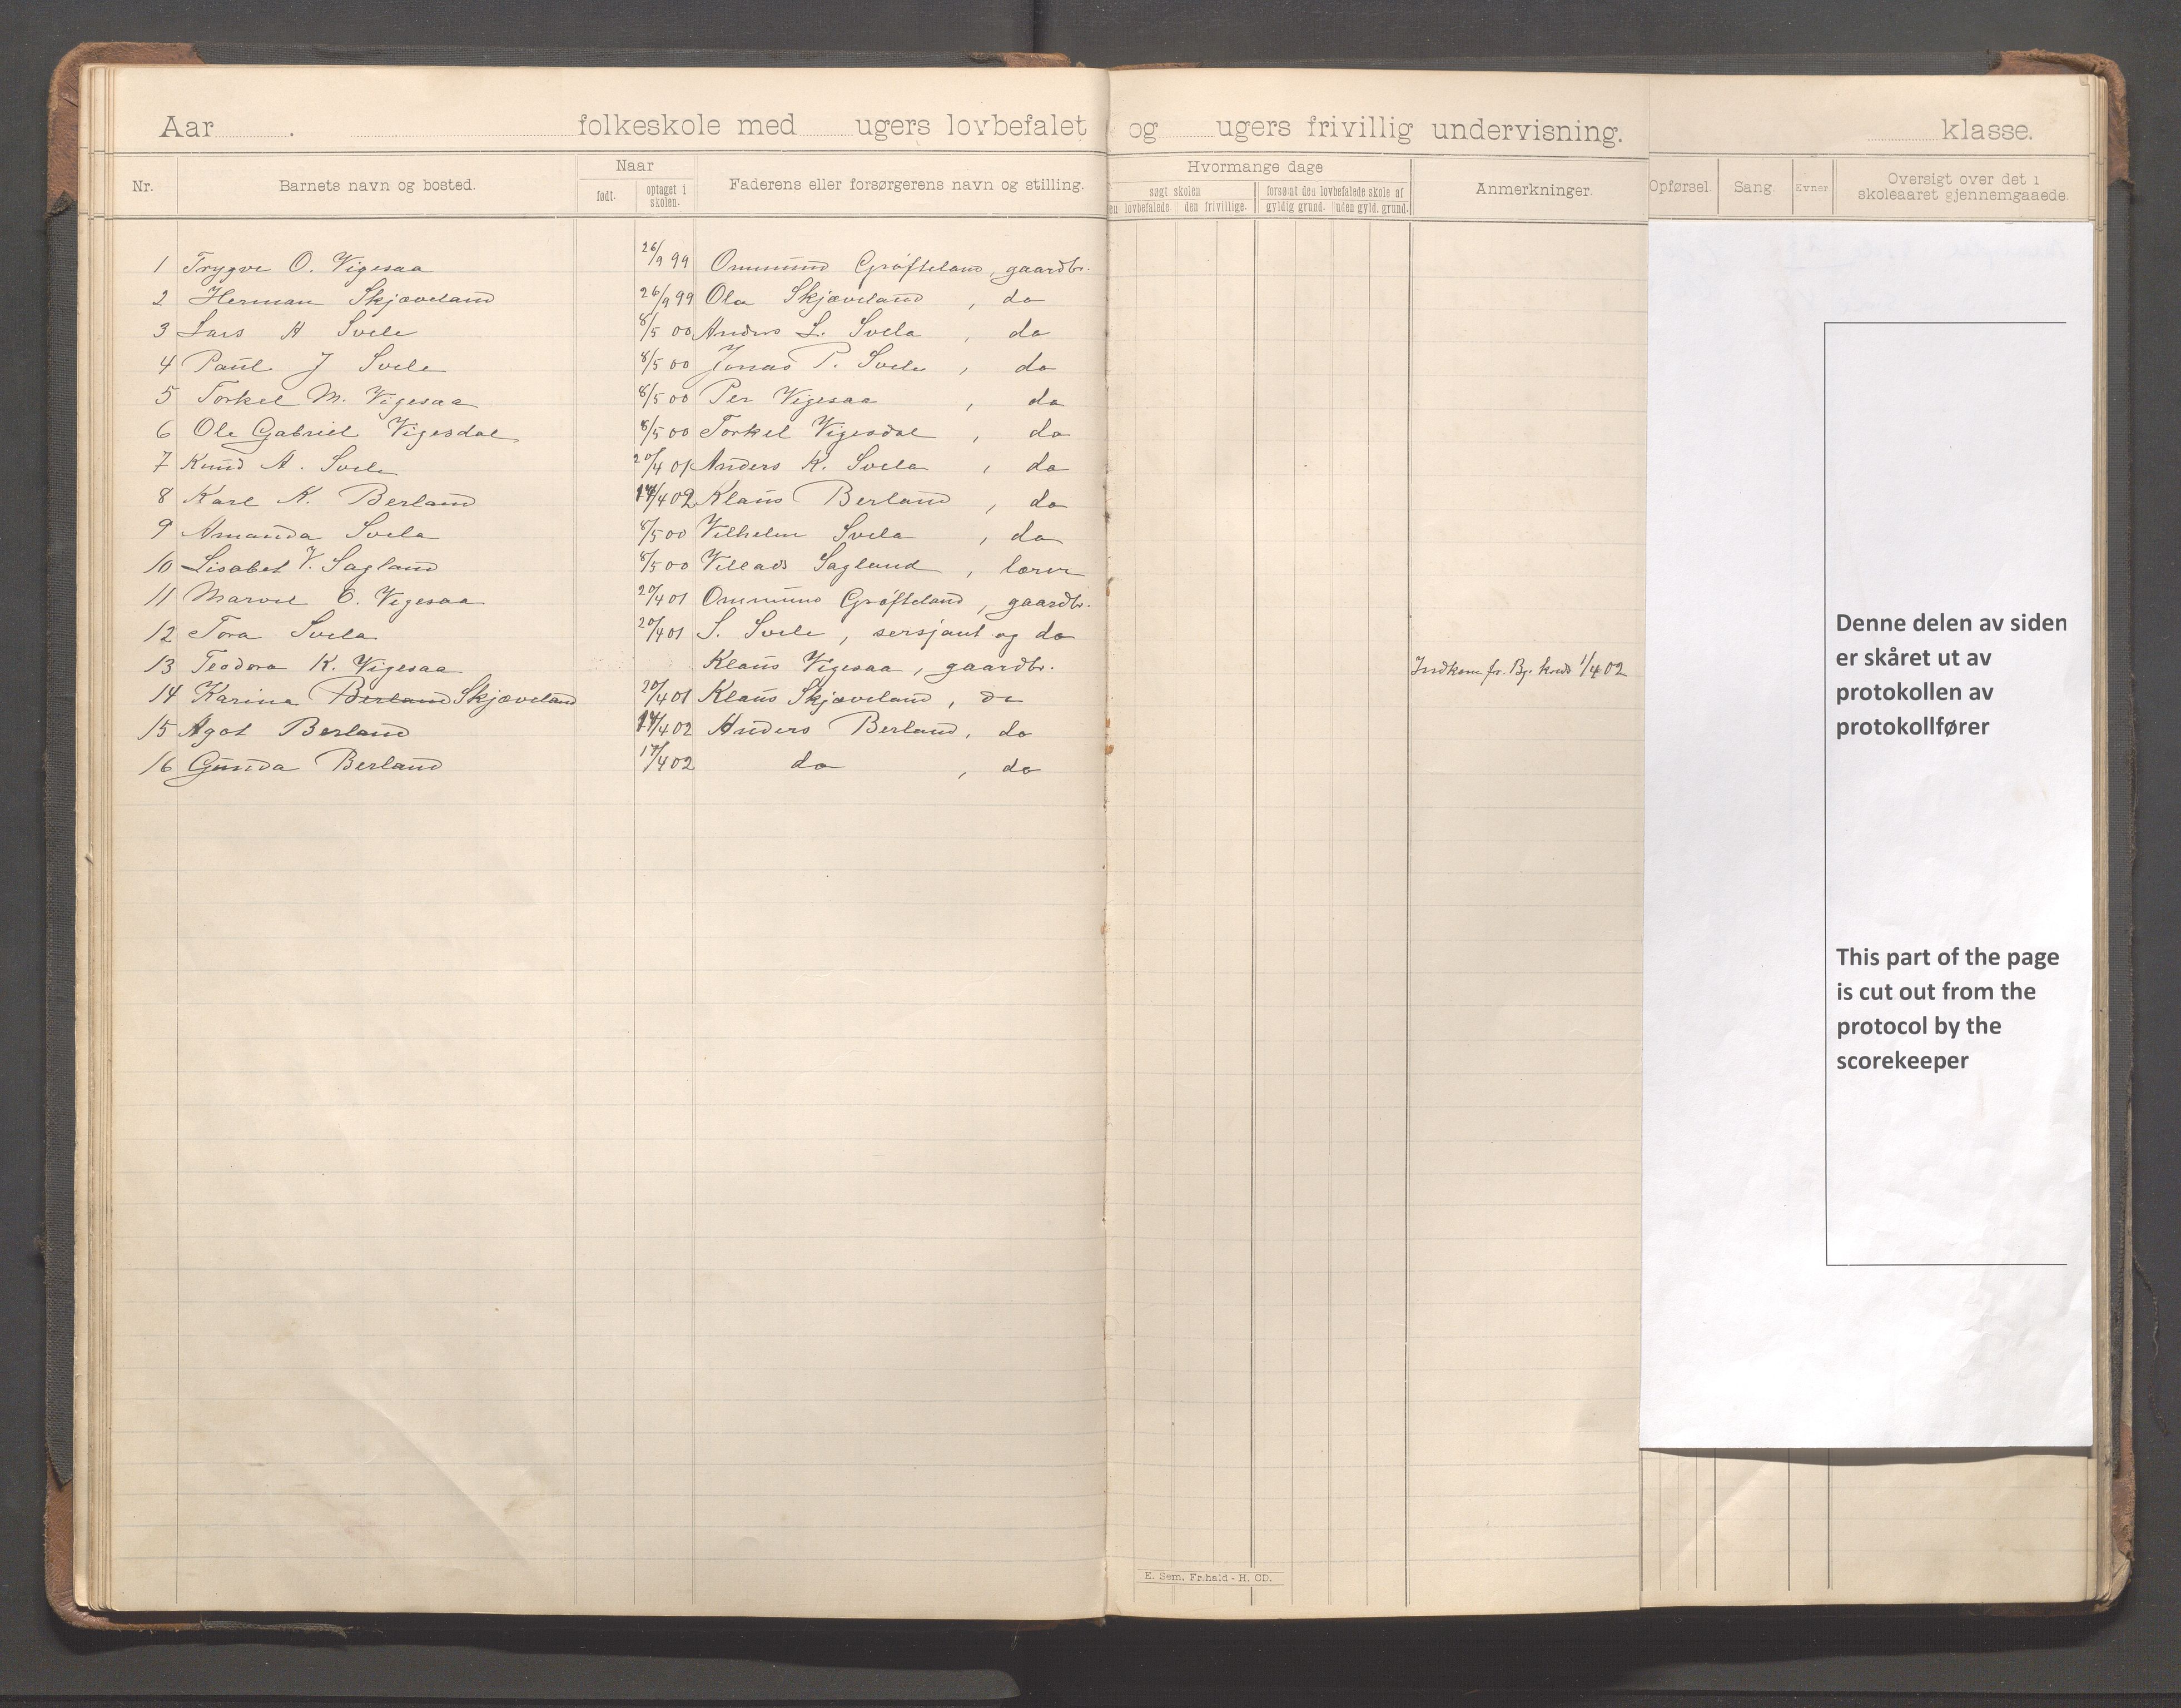 Aar . folkeskole med ugers lovbefalet og ugers frivillig undervisning. klasse.
Nr. Barnets navn og bosted. Naar Faderens eller forsørgerens navn og stilling. Hvormange dage Anmerkninger. Opførsel. Sang. Evner Oversigt over det i
født. optaget i skolen. søgt skolen forsømt den lovbefalede skole af skoleaaret gjennemgaaede.
en lovbefalede den frivillige. gyldig grund. uden gyld. grund.
1 Trygve O. Vigesaa 26/9 99 Ommund Grøfteland, gaardbr.
2 Herman Skjæveland 26/9 99 Ola Skjæveland, do
3 Lars A Svela 8/5 00 Anders L. Svela, do
4 Paul J Svela 8/5 00 Jonas P. Svela, do
5 Torkel M. Vigesaa 8/5 00 Per Vigesaa, do
6 Ole Gabriel Vigesdal 8/5 00 Torkel Vigesdal, do
7 Knud A. Svela 20/4 01 Anders K. Svela, do
8 Karl K. Berland 14/4 02 Klaus Berland, do
9 Amanda Svela 8/5 00 Vilhelm Svela, do
10 Lisabet V. Sagland 8/5 00 Villads Sagland, lærer
11 Marvel O. Vigesaa 20/4 01 Ommund Grøfteland, gaardbr.
12 Tora Svela 20/4 01 S. Svela, sersjant og do
13 Teodora K. Vigesaa Klaus Vigesaa, gaardbr. Indkom fr. By. kreds 1/4 02
14 Karina Berland Skjæveland 20/4 01 Klaus Skjæveland, do
15 Agot Berland 14/4 02 Anders Berland, do
16 Gunda Berland 14/4 02 do, do
Denne delen av siden
er skåret ut av
protokollen av
protokollfører
This part of the page
is cut out from the
protocol by the
scorekeeper
E. Sem, Fr.hald - H. CD.